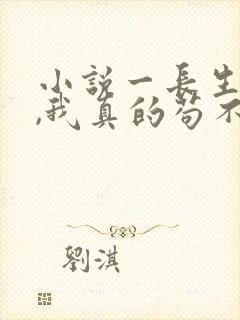 小說一長生
,我真的苟不
劉淇